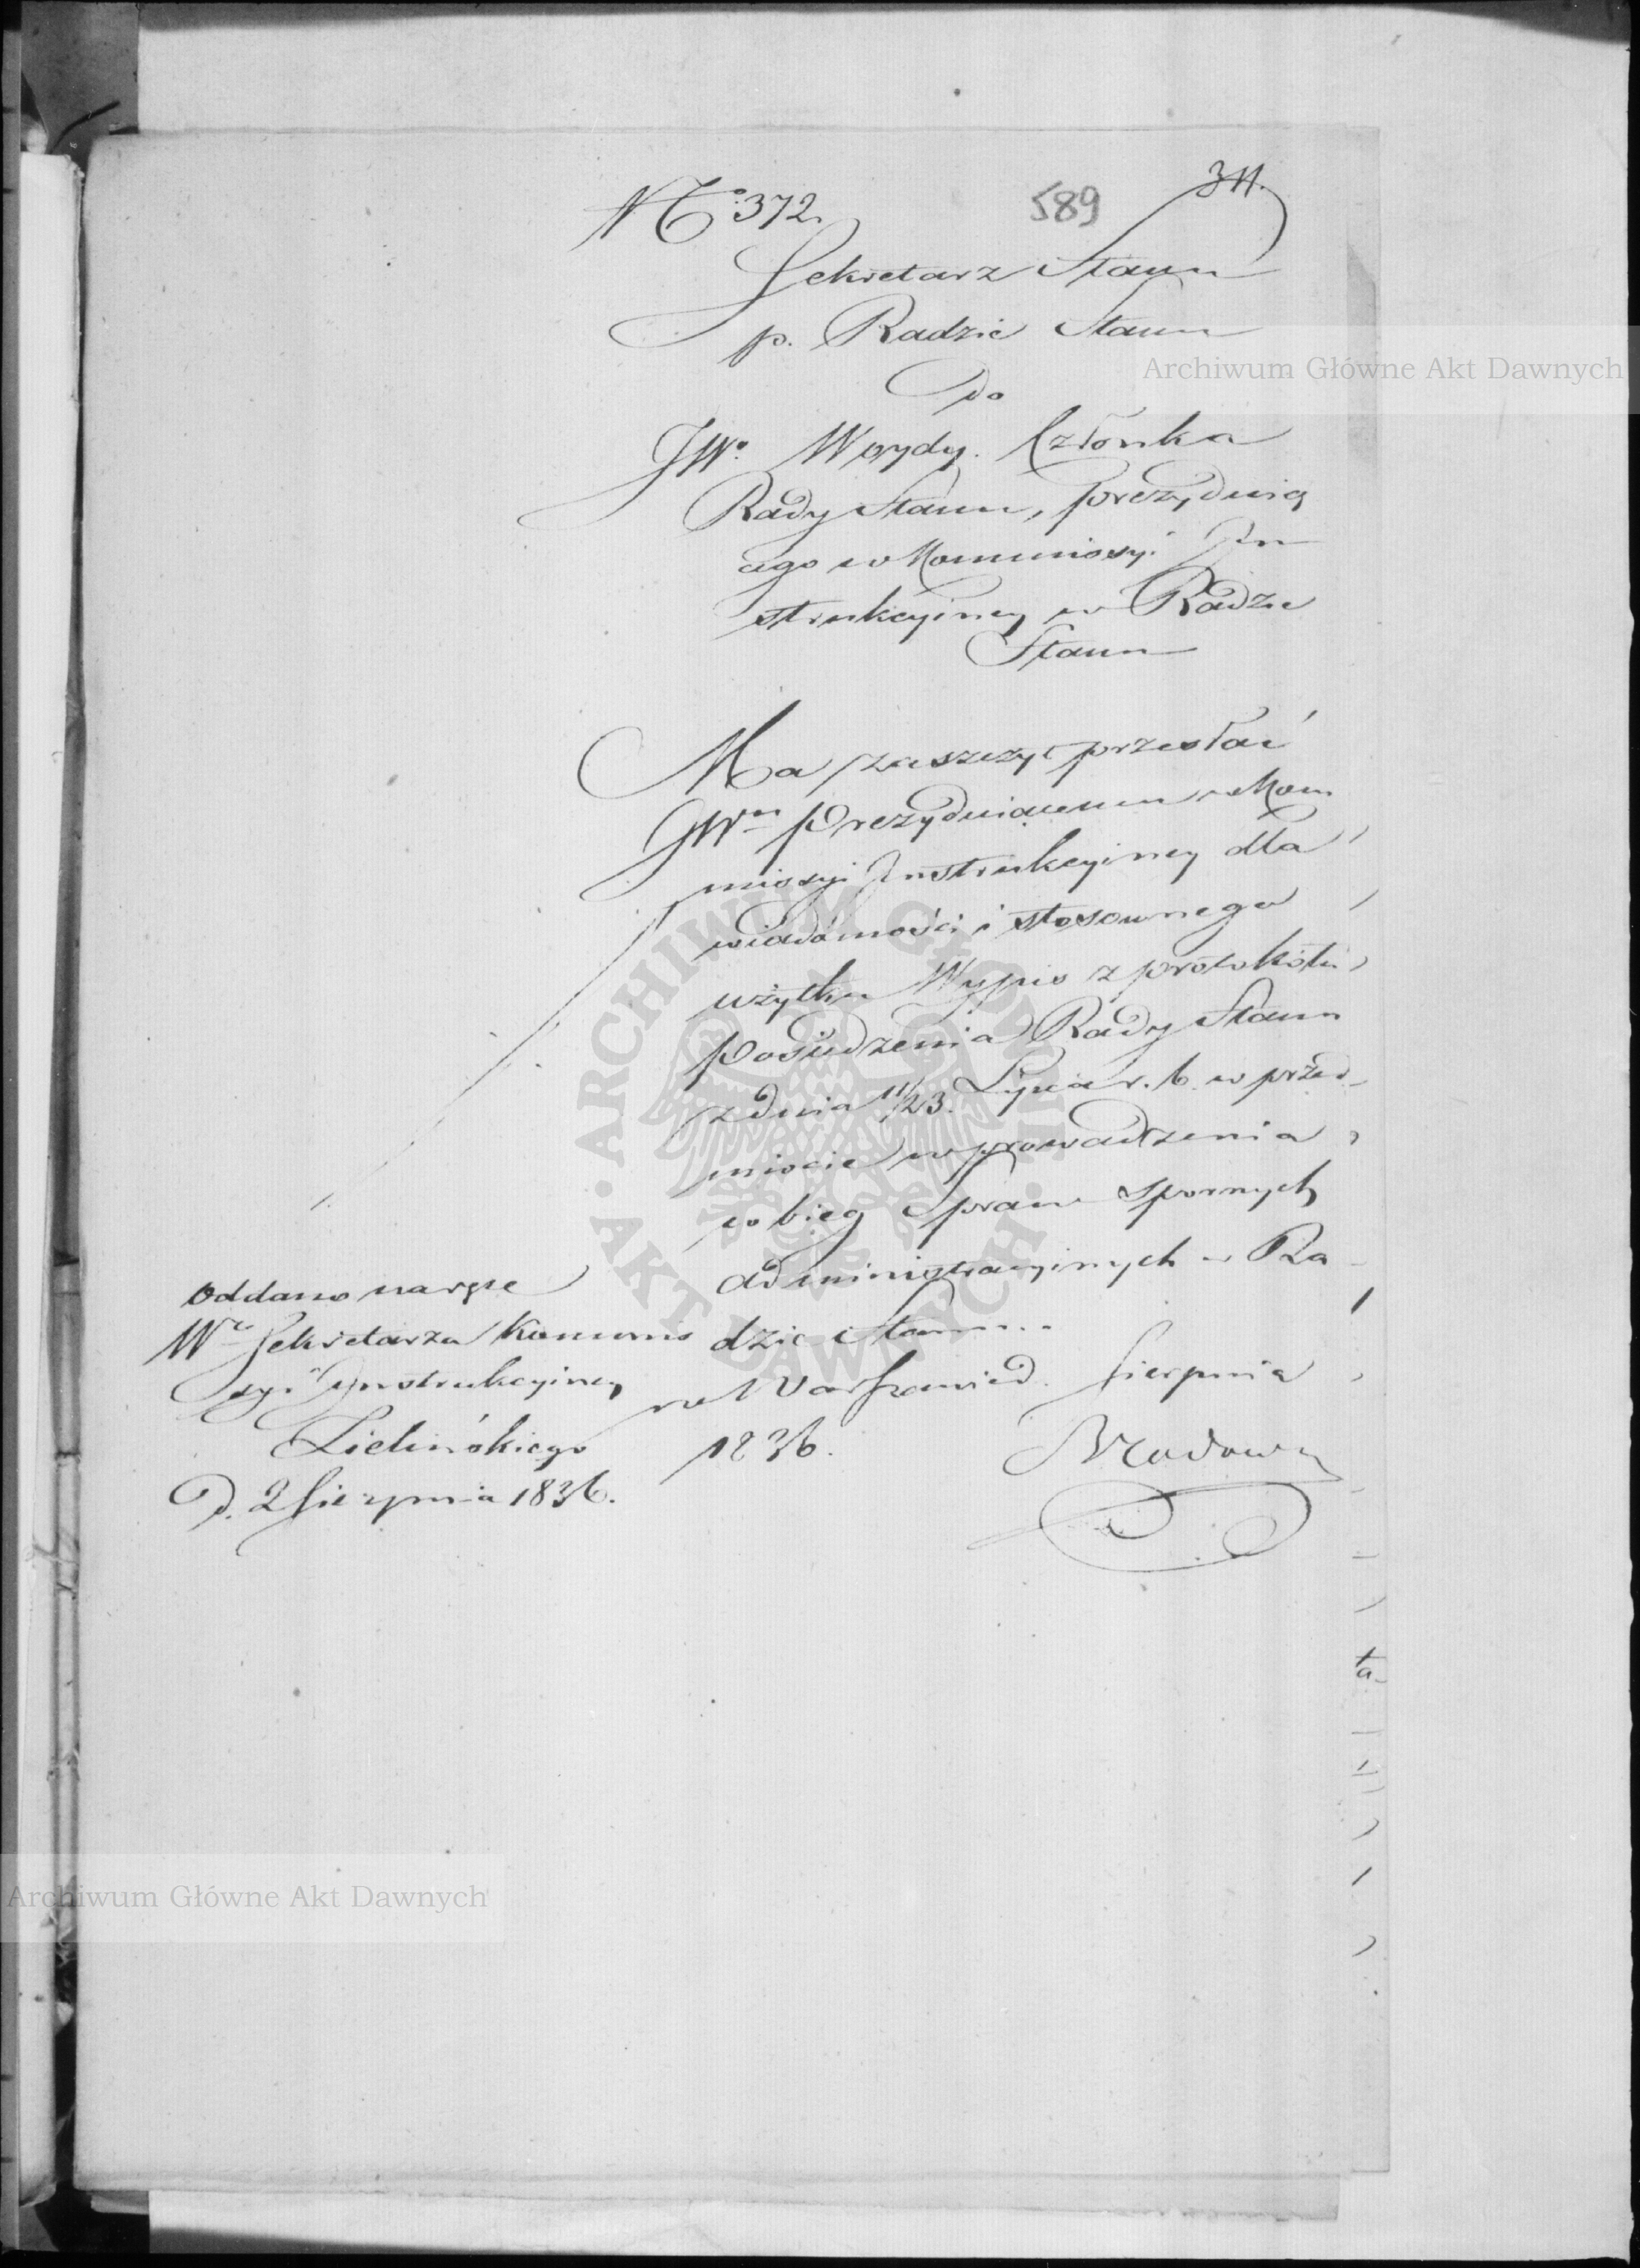 No 372.
589
311.
Sekretarz Stanu
p. Radzie Stanu
do
JWo Woydy. Członka
Rady Stanu, prezyduią
cego w Kommissyi In
strukcyiney w Radzie
Stanu
Ma zaszczyt przesłać
JWmu Prezyduiącemu w Kom
missyi Instrukcyiney dla
wiadomości i stosownego
użytku Wypis z protokółu
posiedzenia Rady Stanu
z dnia 11/23. Lipca r. b. w przed
miocie wprowadzenia
w bieg Spraw Spornych
administracyinych w Ra
dzie Stanu
w Warszawie d. Sierpnia
1836.
Oddano na ręce
Wo Sekretarza Kommis
syi Instrukcyiney
Zielińskiego
D. 2 Sierpnia 1836.
Archiwum Główne Akt Dawnych
ARCHIWUM GŁÓWNE · AKT DAWNYCH ·
Archiwum Główne Akt Dawnych